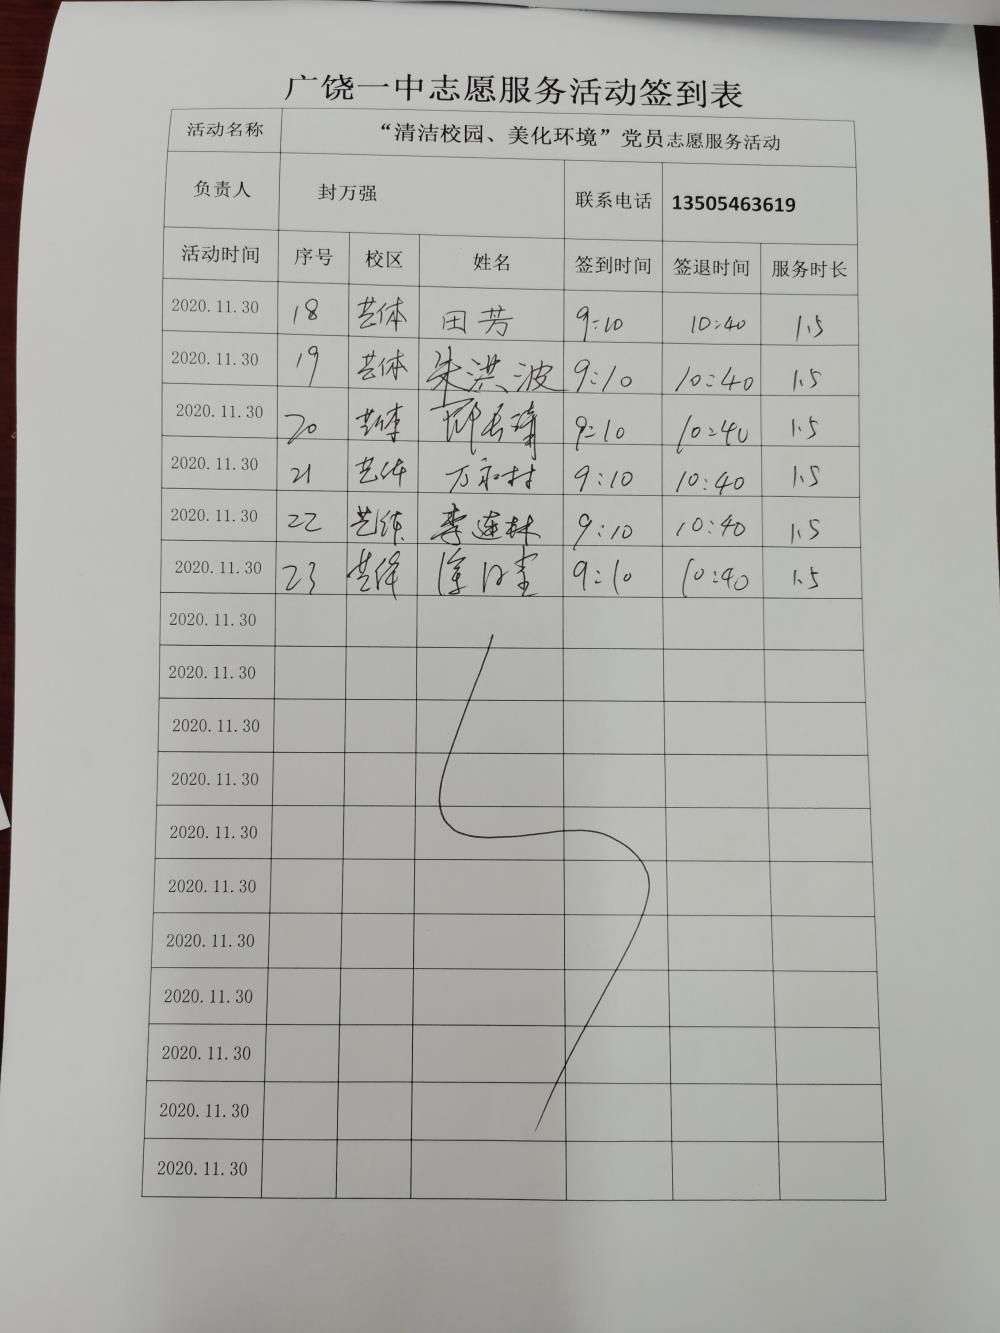 广饶一中志愿服务活动签到表
活动名称 “清洁校园、美化环境”党员志愿服务活动
负责人 封万强 联系电话 13505463619
活动时间 序号 校区 姓名 签到时间 签退时间 服务时长
2020.11.30 18 艺体 田芳 9:10 10:40 1.5
2020.11.30 19 艺体 朱洪波 9:10 10:40 1.5
2020.11.30 20 艺体 9:10 10:40 1.5
2020.11.30 21 艺体 万永村 9:10 10:40 1.5
2020.11.30 22 艺体 李连林 9:10 10:40 1.5
2020.11.30 23 艺体 9:10 10:40 1.5
2020.11.30
2020.11.30
2020.11.30
2020.11.30
2020.11.30
2020.11.30
2020.11.30
2020.11.30
2020.11.30
2020.11.30
2020.11.30